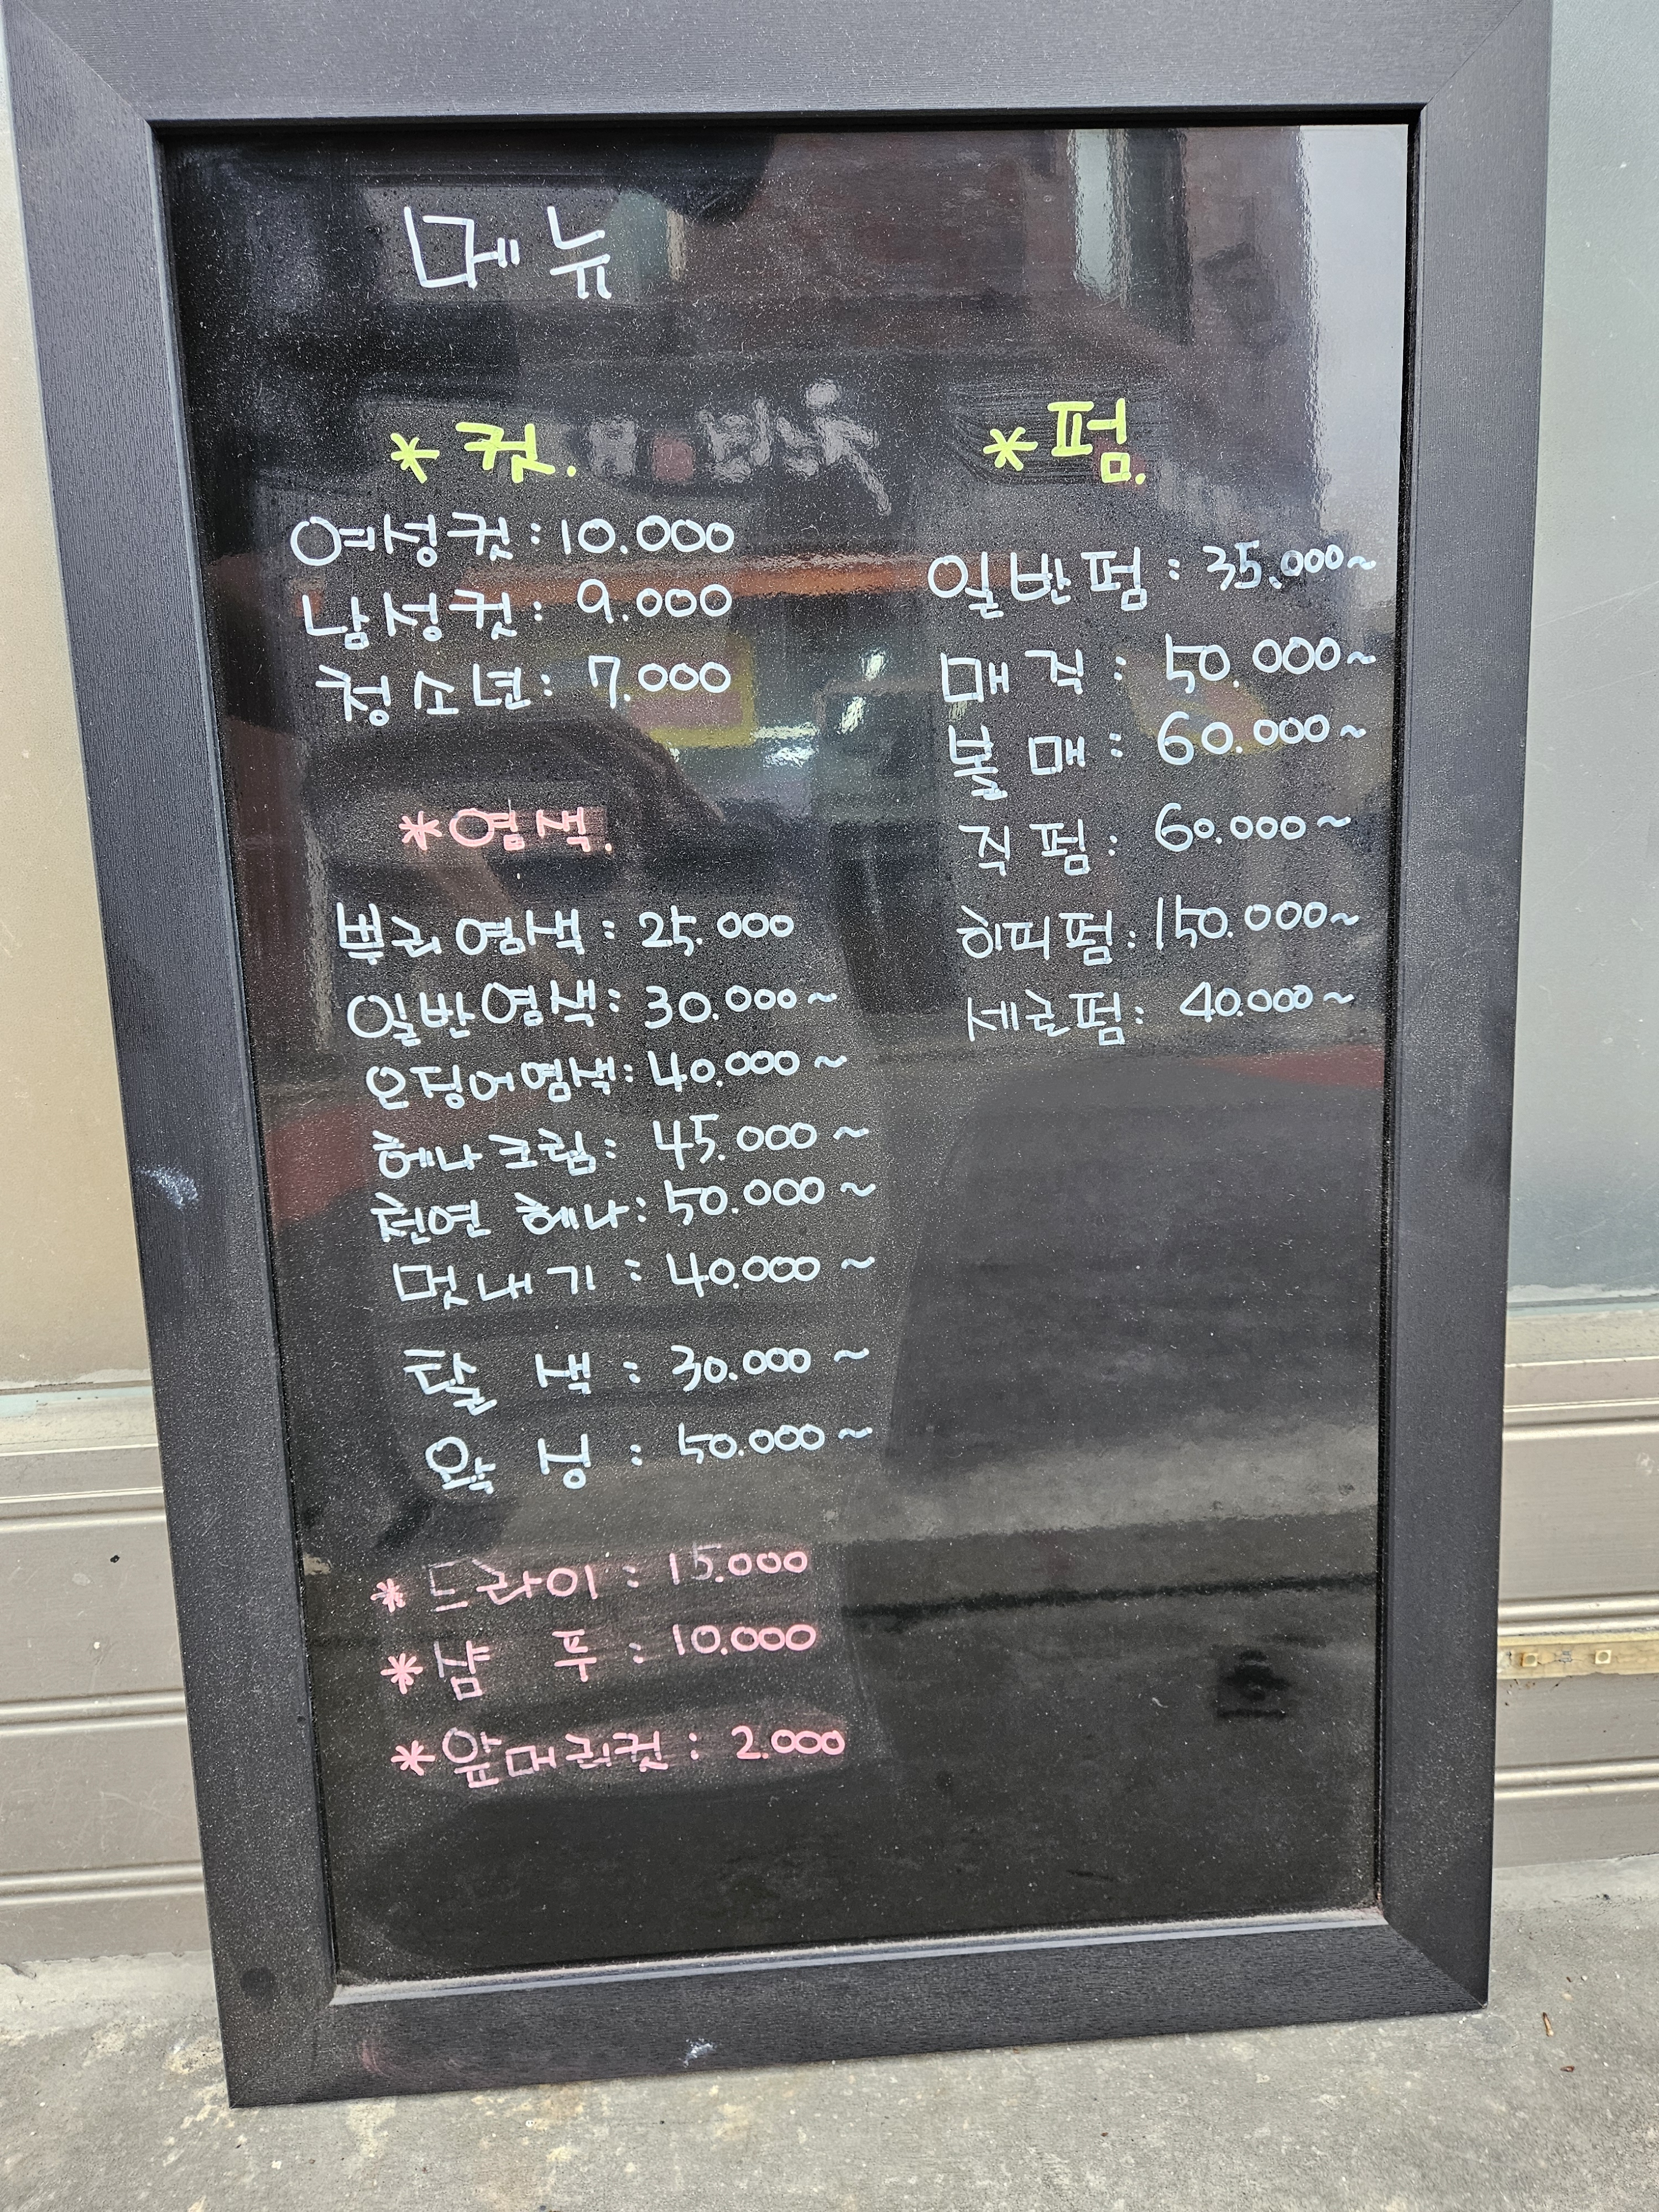 메뉴
*컷.
여성컷: 10.000
남성컷: 9.000
청소년: 7.000
*염색.
뿌리염색: 25.000
일반염색: 30.000~
오징어염색: 40.000~
헤나크림: 45.000~
천연 헤나: 50.000~
멋내기: 40.000~
탈 색: 30.000~
왁싱: 50.000~
*드라이: 15.000
*샴 푸: 10.000
*앞머리컷: 2.000
*펌.
일반펌: 35.000~
매직: 50.000~
볼매: 60.000~
직펌: 60.000~
히피펌: 150.000~
세로펌: 40.000~